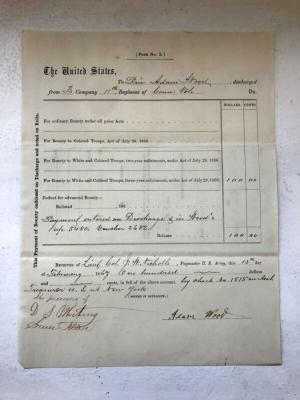 [Form No. 3.]
The United States,
To Priv. Adam Wood, discharged
from Company 11th Regiment of Conn. Vols Dr.
DOLLARS. CENTS.
For ordinary Bounty under all prior Acts
For Bounty to Colored Troops, Act of July 28, 1866
For Bounty to White and Colored Troops, two-year enlistments, under Act of July 28, 1866
For Bounty to White and Colored Troops, three-year enlistments, under Act of July 28, 1866 100 00
Deduct for advanced Bounty—
Enlisted 186
Payment entered on Discharge & in
Balance 100 00
The Payment of Bounty endorsed on Discharge and noted on Rolls.
Received of Lieut. Col. J. W. Nicholls, Paymaster U. S. Army, this 15th day
of February 1867 One hundred dollars
and cents, in full of the above account, by check No. 1515 on Asst
Treasurer U. S. at New York
In presence of [SIGNED IN DUPLICATE.]
D. S. Whiting
Adam Wood